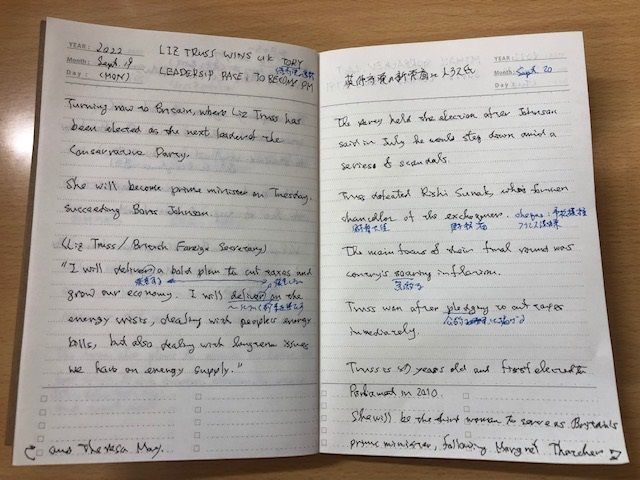 YEAR: 2022
Month: Sept. 19
Day: (MON)
LIZ TRUSS WINS UK TORY
LEADERSIP RACE, TO BECOME PM
Turning now to Britain, where Liz Truss has
been elected as the next leader of the
Conservative Party.
She will become prime minister on Tuesday,
succeeding Boris Johnson.
(Liz Truss / British Foreign Secretary)
"I will deliver a bold plan to cut taxes and
grow our economy. I will deliver on the
energy crisis, dealing with people's energy
bills, but also dealing with longterm issues
we have on energy supply."
and Theresa May.
YEAR:
Month: Sept. 20
Day:
The party held the election after Johnson
said in July he would step down amid a
series of scandals.
Truss defeated Rishi Sunak, former
chancellor of the exchequer.
財務大臣
The main focus of their final round was
country's soaring inflation.
Truss won after pledging to cut taxes
immediately.
Truss is 47 years old and first elected to
Parliament in 2010.
She will be the third woman to serve as Britain's
prime minister, following Margret Thatcher